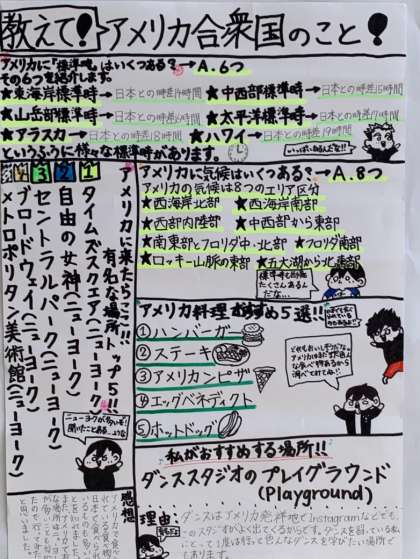 教えて!アメリカ合衆国のこと!
アメリカに「標準時」はいくつある?→A.6つ
その6つを紹介します。
★東海岸標準時→日本との時差14時間
★中西部標準時→日本との時差15時間
★山岳部標準時→日本との時差16時間
★太平洋標準時→日本との時差17時間
★アラスカ→日本との時差18時間
★ハワイ→日本との時差19時間
というふうに様々な標準時があります。
いっぱいあるんだな!!
アメリカに気候はいくつある?→A.8つ
アメリカの気候は8つのエリア区分
★西海岸北部
★西海岸南部
★西部内陸部
★中西部から東部
★南東部とフロリダ中・北部
★フロリダ南部
★ロッキー山脈の東部
★五大湖から北東部
標準時も気候もたくさんあるんだな…
アメリカに来たらここ!!
有名な場所トップ5!!
1 タイムズスクエア(ニューヨーク)
2 自由の女神(ニューヨーク)
3 セントラルパーク(ニューヨーク)
ブロードウェイ(ニューヨーク)
メトロポリタン美術館(ニューヨーク)
ニューヨークが多いな!
聞いたことある…ような
アメリカ料理おすすめ5選!!
①ハンバーガー
②ステーキ
③アメリカンピザ
④エッグベネディクト
⑤ホットドッグ
私がおすすめする場所!!
ダンススタジオのプレイグラウンド
(Playground)
理由:ダンスはアメリカ発祥地でInstagramなどでも、
このスタジオがよく出てくるからです。ダンスを習っている私
にとって1度は行って色んなダンスを学びたい場所で
もあります。
感想